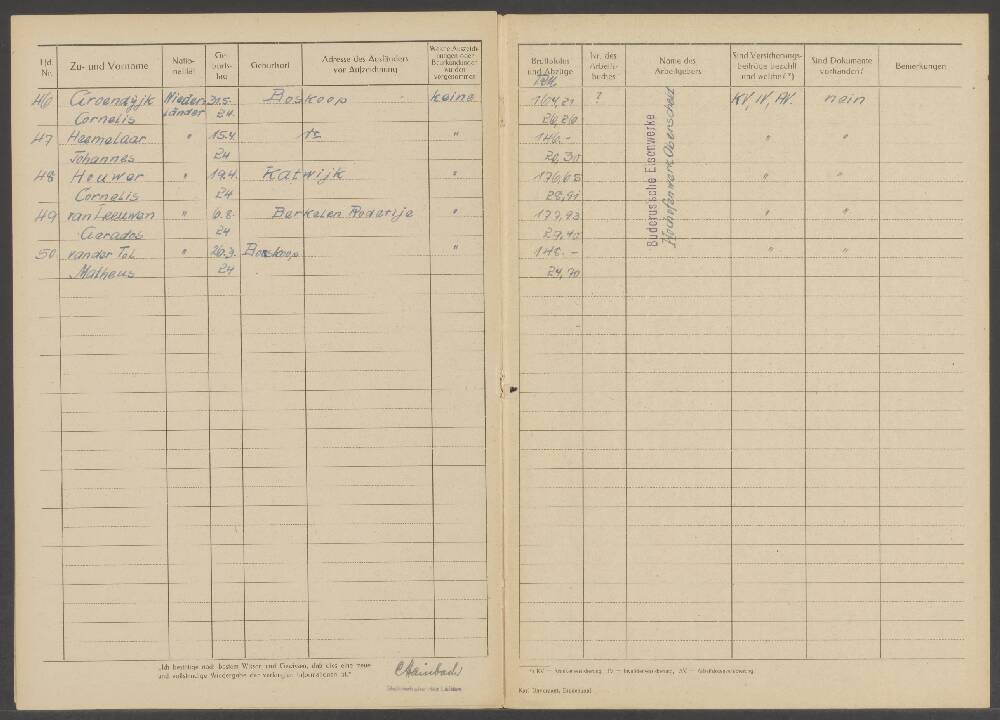 lfd. Nr. Zu- und Vorname Natio- nalität Ge- burts- tag Geburtsort Adresse des Ausländers vor Aufzeichnung Welche Aufzeich- nungen oder Beurkundungen wurden vorgenommen
46 Groendijk Nieder- 31.5. Boskoop - keine
Cornelis länder 24.
47 Heemelaar " 15.4. "
Johannes 24
48 Houwer " 19.4. Katwijk "
Cornelis 24
49 van Leeuwen " 6.8. Berkelen Roderije "
Gerardos 24
50 van der Tol " 20.3. Boskoop "
Matheus 24
„Ich bestätige nach bestem Wissen und Gewissen, daß dies eine neue
und vollständige Wiedergabe der verlangten Informationen ist."
Bruttolohn und Abzüge RM Nr. des Arbeits- buches Name des Arbeitgebers Sind Versicherungs- beiträge bezahlt und welche(*) Sind Dokumente vorhanden? Bemerkungen
164,21 ? KV, IV, AV. nein
26,26
146.- " "
20,30
176,65 " "
28,91
177,93 " "
29,40
148.- " "
24,70
Buderus'sche Eisenwerke
Hochofenwerk Oberscheld
*) KV — Krankenversicherung, IV — Invalidenversicherung, AV — Arbeitslosenversicherung